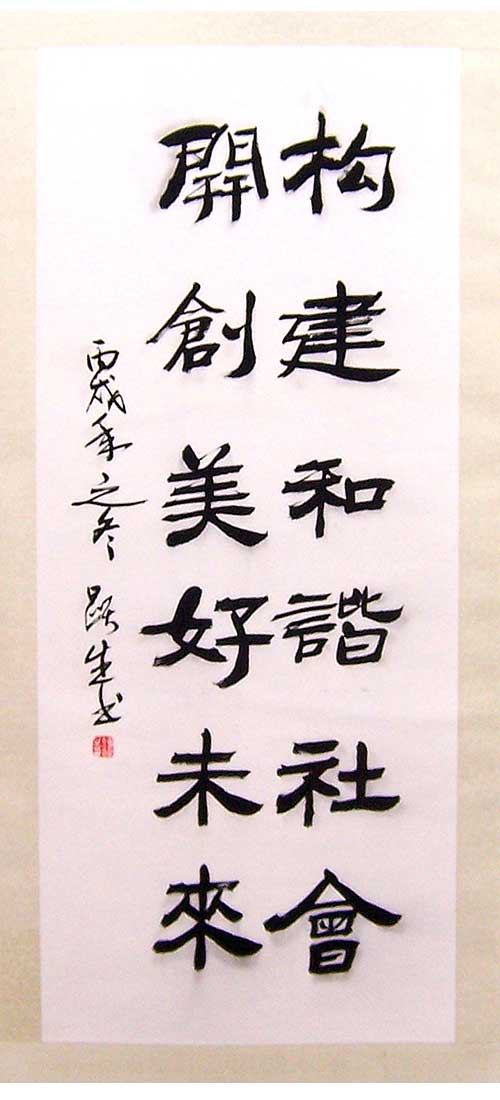 构建和諧社會
開創美好未來
丙戌年之冬 跃生书